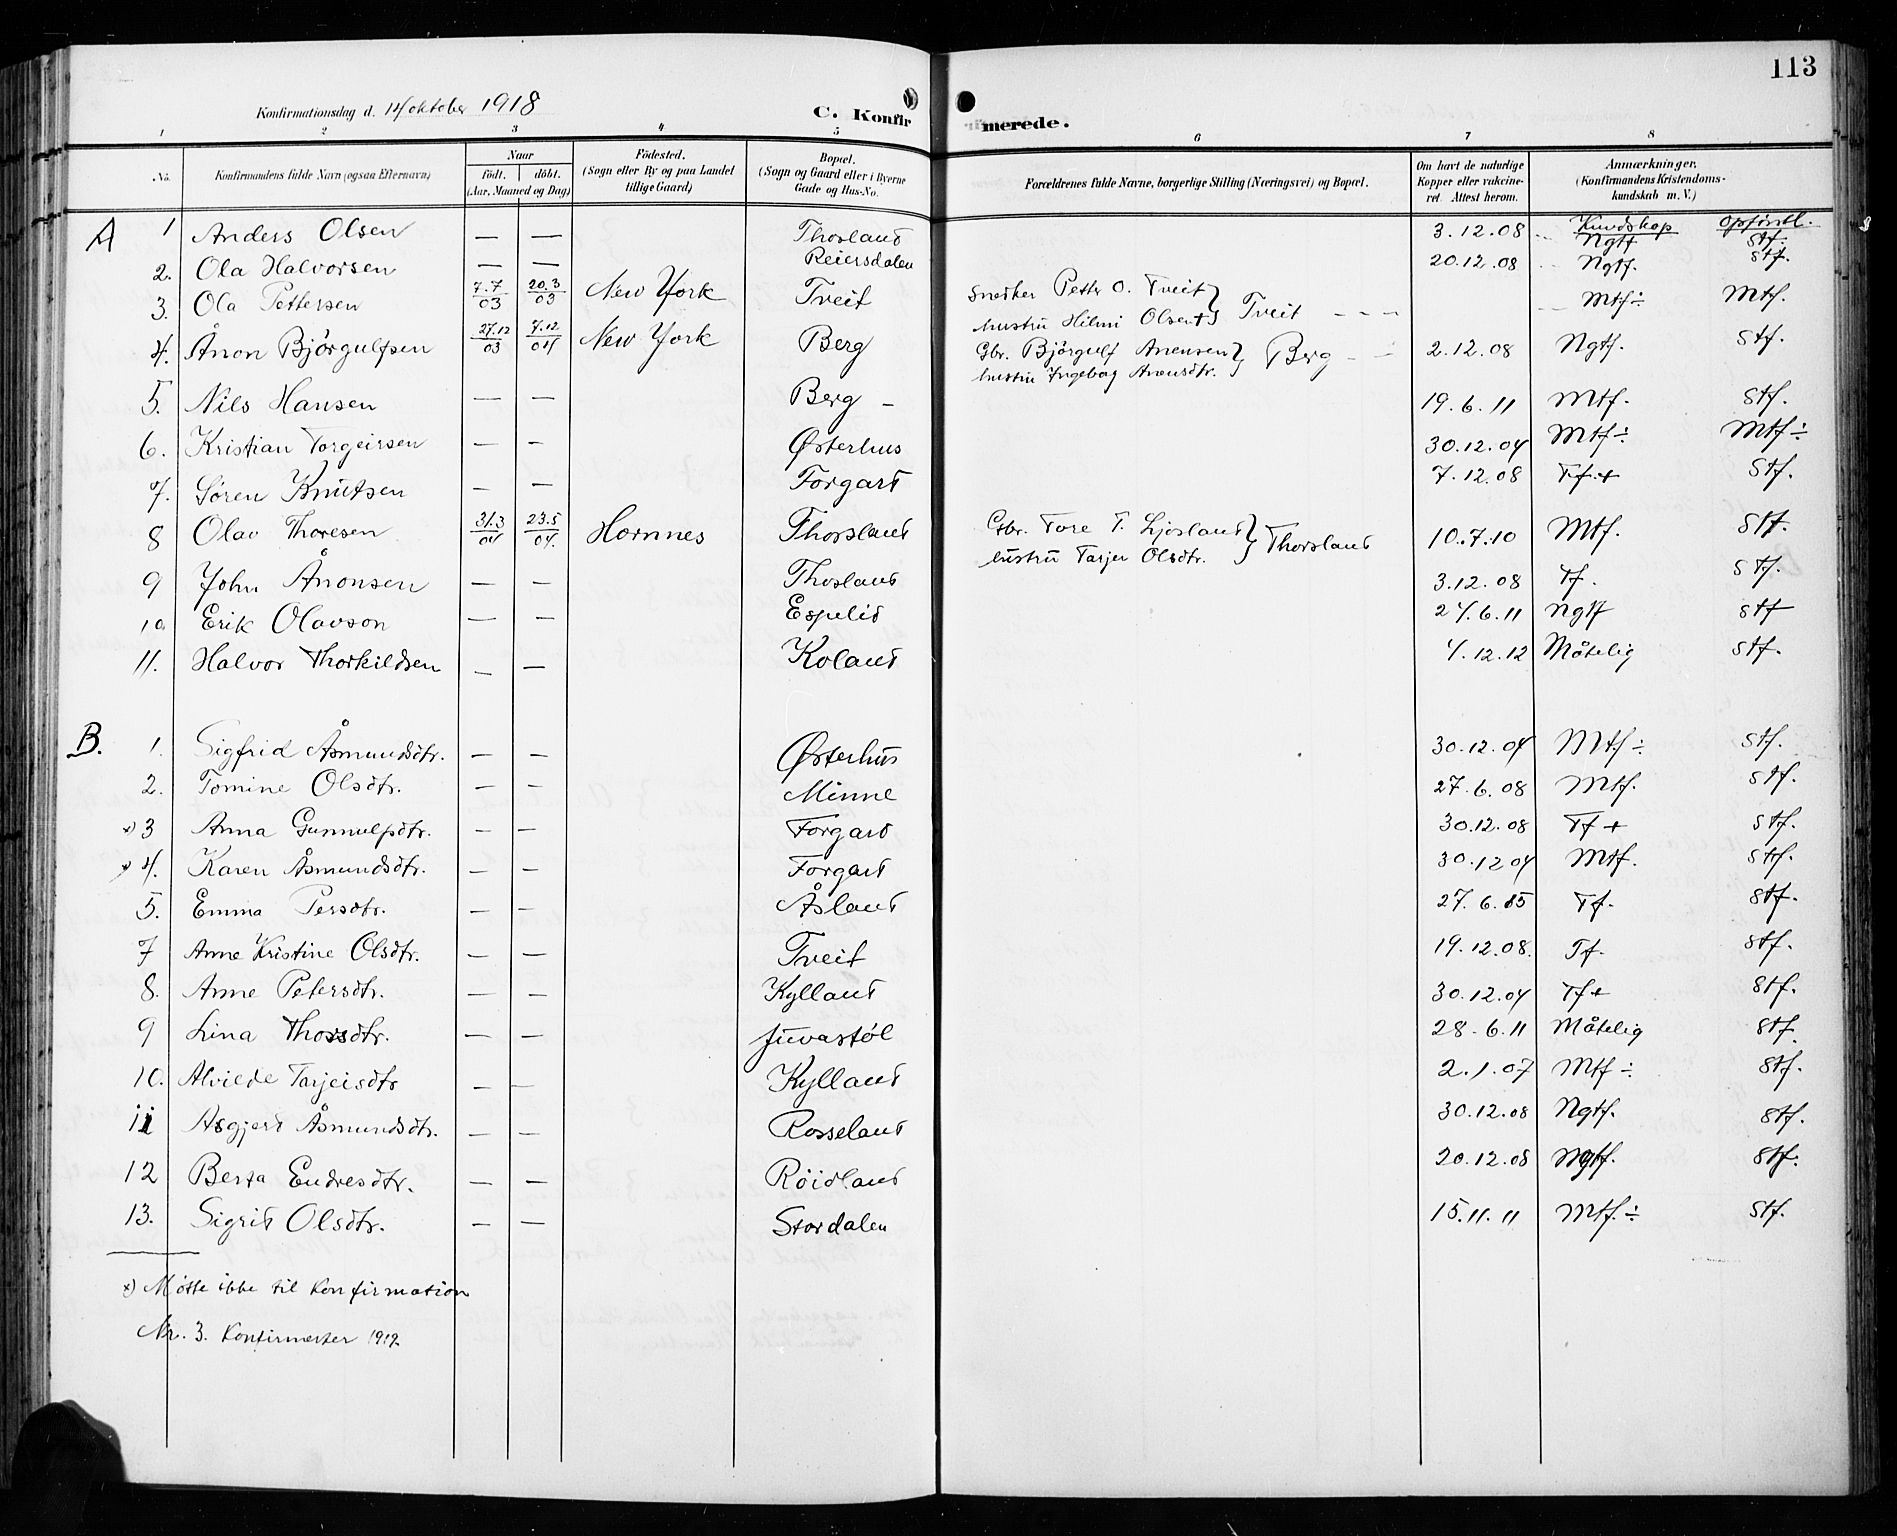 113
Konfirmationsdag d. 14/oktober 1918
C. Konfir merede.
1 2 3 4 5 6 7 8
No.
Konfirmandens fulde Navn (ogsaa Efternavn)
Naar
födt. döbt.
(Aar, Maaned og Dag)
Födested.
(Sogn eller By og paa Landet
tillige Gaard)
Bopæl.
(Sogn og Gaard eller i Byerne
Gade og Hus-No.
Forældrenes fulde Navne, borgerlige Stilling (Næringsvei) og Bopæl.
Om havt de naturlige
Kopper eller vakcine-
ret. Attest herom.
Anmærkninger.
(Konfirmandens Kristendoms-
kundskab m. V.)
Kundskap opförsel.
A 1 Anders Olsen — — Thorland 3.12.08 Ngtf Stf.
2. Ola Halvorsen — — Reiersdalen 20.12.08 Ngtf. Stf.
3. Ola Pettersen 7.7/03 20.3/03 New York Tveit Snedker Petter O. Tveit } Tveit — — — Mtf÷ Mtf.
hustru Hilmi Olsen
4. Ånon Björgulfsen 27.12/03 7.12/04 New York Berg Gbr. Björgulf Anensen } Berg 2.12.08 Ngtf. Stf.
hustru Ingebog Anensdtr.
5. Nils Hansen — — Berg 19.6.11 Mtf. Stf.
6. Kristian Torgeirsen — — Østerhus 30.12.04 Mtf÷ Mtf÷
7. Sören Knutsen — — Forgard 7.12.08 Tf.+ Stf.
8 Olav Thoresen 31.3/04 23.5/04. Hornnes Thorsland Gbr. Tore T. Ljosland } Thorsland 10.7.10 Mtf. Stf.
hustru Tarjer Olsdtr.
9 John Ånonsen — — Thosland 3.12.08 Tf. Stf.
10. Erik Olavson — — Espelid 24.6.11 Ngtf Stf
11. Halvor Thorkildsen — — Koland 4.12.12 Måtelig Stf.
B. 1. Sigfrid Åsmundsdtr. — — Østerhus 30.12.04 Mtf÷ Stf.
2. Tomine Olsdtr. — — Minne 27.6.08 Mtf. Stf.
x) 3 Anna Gunnulfsdtr. — — Forgard 30.12.08 Tf+ Stf.
x 4. Karen Åsmundsdtr. — — Forgard 30.12 04 Mtf. Stf.
5. Emma Persdtr. — — Åsland 27.6.05 Tf. Stf.
7 Anne Kristine Olsdtr. — — Tveit 19.12.08. Tf. Stf.
8. Anne Petersdtr. — — Kylland 30.12.04 Tf+ Stf.
9 Lina Thorsdtr. — — Juvastøl 28.6.11 Måtelig Stf.
10. Alvilde Tarjeisdtr — — Kylland 2.1.07 Mtf÷ Stf.
11 Asgjerd Åsmundsdtr. — — Rosseland 30.12.08 Ngtf. Stf.
12 Berta Endresdtr. — — Röidland 20.12.08 Ngtf. Stf.
13. Sigrid Olsdtr. — — Stordalen 15.11.11 Mtf.÷ Stf.
x) Mötte ikke til Konfirmation
Nr. 3. Konfirmerter 1919